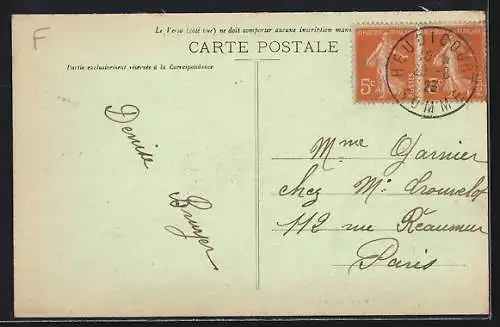 F
Le Verso (côté vue) ne doit comporter aucune inscription
CARTE POSTALE
Partie exclusivement réservée à la Correspondance
5c
HEUDICOURT
SOMME
Denise
Bruyer
Mme Garnier
chez Mr
112 rue Réaumur
Paris